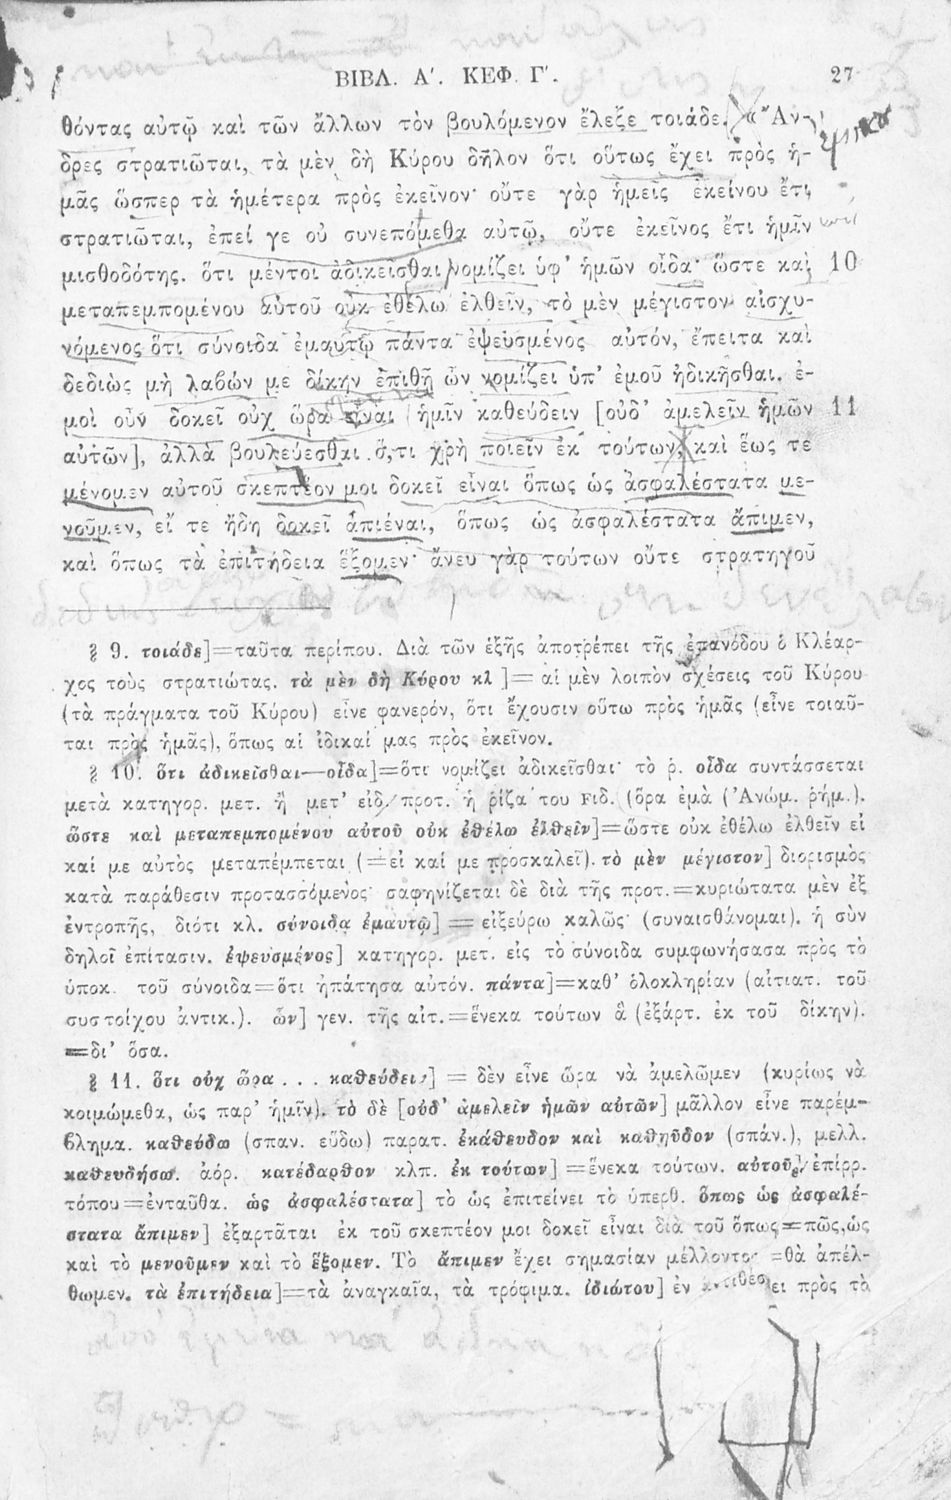 ΒΙΒΛ. Α΄. ΚΕΦ. Γ΄.
27
θόντας αὐτῷ καὶ τῶν ἄλλων τὸν βουλόμενον ἔλεξε τοιάδε. «Ἄν-
δρες στρατιῶται, τὰ μὲν δὴ Κύρου δῆλον ὅτι οὕτως ἔχει πρὸς ἡ-
μᾶς ὥσπερ τὰ ἡμέτερα πρὸς ἐκεῖνον· οὔτε γὰρ ἡμεῖς ἐκείνου ἔτι
στρατιῶται, ἐπεί γε οὐ συνεπόμεθα αὐτῷ, οὔτε ἐκεῖνος ἔτι ἡμῖν
μισθοδότης. ὅτι μέντοι ἀδικεῖσθαι νομίζει ὑφ' ἡμῶν οἶδα· ὥστε καὶ 10
μεταπεμπομένου αὐτοῦ οὐκ ἐθέλω ἐλθεῖν, τὸ μὲν μέγιστον αἰσχυ-
νόμενος ὅτι σύνοιδα ἐμαυτῷ πάντα ἐψευσμένος αὐτόν, ἔπειτα καὶ
δεδιὼς μὴ λαβών με δίκην ἐπιθῇ ὧν νομίζει ὑπ' ἐμοῦ ἠδικῆσθαι. ἐ-
μοὶ οὖν δοκεῖ οὐχ ὥρα εἶναι ἡμῖν καθεύδειν [οὐδ' ἀμελεῖν ἡμῶν 11
αὐτῶν], ἀλλὰ βουλεύεσθαι ὅ,τι χρὴ ποιεῖν ἐκ τούτων, καὶ ἕως τε
μένομεν αὐτοῦ σκεπτέον μοι δοκεῖ εἶναι ὅπως ὡς ἀσφαλέστατα με-
νοῦμεν, εἴ τε ἤδη δοκεῖ ἀπιέναι, ὅπως ὡς ἀσφαλέστατα ἄπιμεν,
καὶ ὅπως τὰ ἐπιτήδεια ἕξομεν· ἄνευ γὰρ τούτων οὔτε στρατηγοῦ
§ 9. τοιάδε]=ταῦτα περίπου. Διὰ τῶν ἑξῆς ἀποτρέπει τῆς ἐπανόδου ὁ Κλέαρ-
χος τοὺς στρατιώτας. τὰ μὲν δὴ Κύρου κλ ]= αἱ μὲν λοιπὸν σχέσεις τοῦ Κύρου
(τὰ πράγματα τοῦ Κύρου) εἶνε φανερόν, ὅτι ἔχουσιν οὕτω πρὸς ἡμᾶς (εἶνε τοιαῦ-
ται πρὸς ἡμᾶς), ὅπως αἱ ἰδικαί μας πρὸς ἐκεῖνον.
§ 10. ὅτι ἀδικεῖσθαι—οἶδα]=ὅτι νομίζει ἀδικεῖσθαι· τὸ ῥ. οἶδα συντάσσεται
μετὰ κατηγορ. μετ. ἢ μετ' εἰδ. προτ. ἡ ῥίζα του Fιδ. (ὅρα ἐμὰ (Ἀνώμ. ῥήμ.).
ὥστε καὶ μεταπεμπομένου αὐτοῦ οὐκ ἐθέλω ἐλθεῖν]=ὥστε οὐκ ἐθέλω ἐλθεῖν εἰ
καί με αὐτὸς μεταπέμπεται (=εἰ καί με προσκαλεῖ). τὸ μὲν μέγιστον] διορισμὸς
κατὰ παράθεσιν προτασσόμενος· σαφηνίζεται δὲ διὰ τῆς προτ.=κυριώτατα μὲν ἐξ
ἐντροπῆς, διότι κλ. σύνοιδα ἐμαυτῷ] = εἰξεύρω καλῶς (συναισθάνομαι). ἡ σὺν
δηλοῖ ἐπίτασιν. ἐψευσμένος] κατηγορ. μετ. εἰς τὸ σύνοιδα συμφωνήσασα πρὸς τὸ
ὑποκ. τοῦ σύνοιδα=ὅτι ἠπάτησα αὐτόν. πάντα]=καθ' ὁλοκληρίαν (αἰτιατ. τοῦ
συστοίχου ἀντικ.). ὧν] γεν. τῆς αἰτ.=ἕνεκα τούτων ἃ (ἐξάρτ. ἐκ τοῦ δίκην).
=δι' ὅσα.
§ 11. ὅτι οὐχ ὥρα . . . καθεύδειν] = δὲν εἶνε ὥρα νὰ ἀμελῶμεν (κυρίως νὰ
κοιμώμεθα, ὡς παρ' ἡμῖν). τὸ δὲ [οὐδ' ἀμελεῖν ἡμῶν αὐτῶν] μᾶλλον εἶνε παρέμ-
βλημα. καθεύδω (σπαν. εὕδω) παρατ. ἐκάθευδον καὶ καθηῦδον (σπάν.), μελλ.
καθευδήσω. ἀόρ. κατέδαρθον κλπ. ἐκ τούτων] =ἕνεκα τούτων. αὐτοῦ] ἐπίρρ.
τόπου=ἐνταῦθα. ὡς ἀσφαλέστατα] τὸ ὡς ἐπιτείνει τὸ ὑπερθ. ὅπως ὡς ἀσφαλέ-
στατα ἄπιμεν] ἐξαρτᾶται ἐκ τοῦ σκεπτέον μοι δοκεῖ εἶναι διὰ τοῦ ὅπως=πῶς,ὡς
καὶ τὸ μενοῦμεν καὶ τὸ ἕξομεν. Τὸ ἄπιμεν ἔχει σημασίαν μέλλοντος =θὰ ἀπέλ-
θωμεν. τὰ ἐπιτήδεια]=τὰ ἀναγκαῖα, τὰ τρόφιμα. ἰδιώτου] ἐν ἀντιθέσει πρὸς τὸ